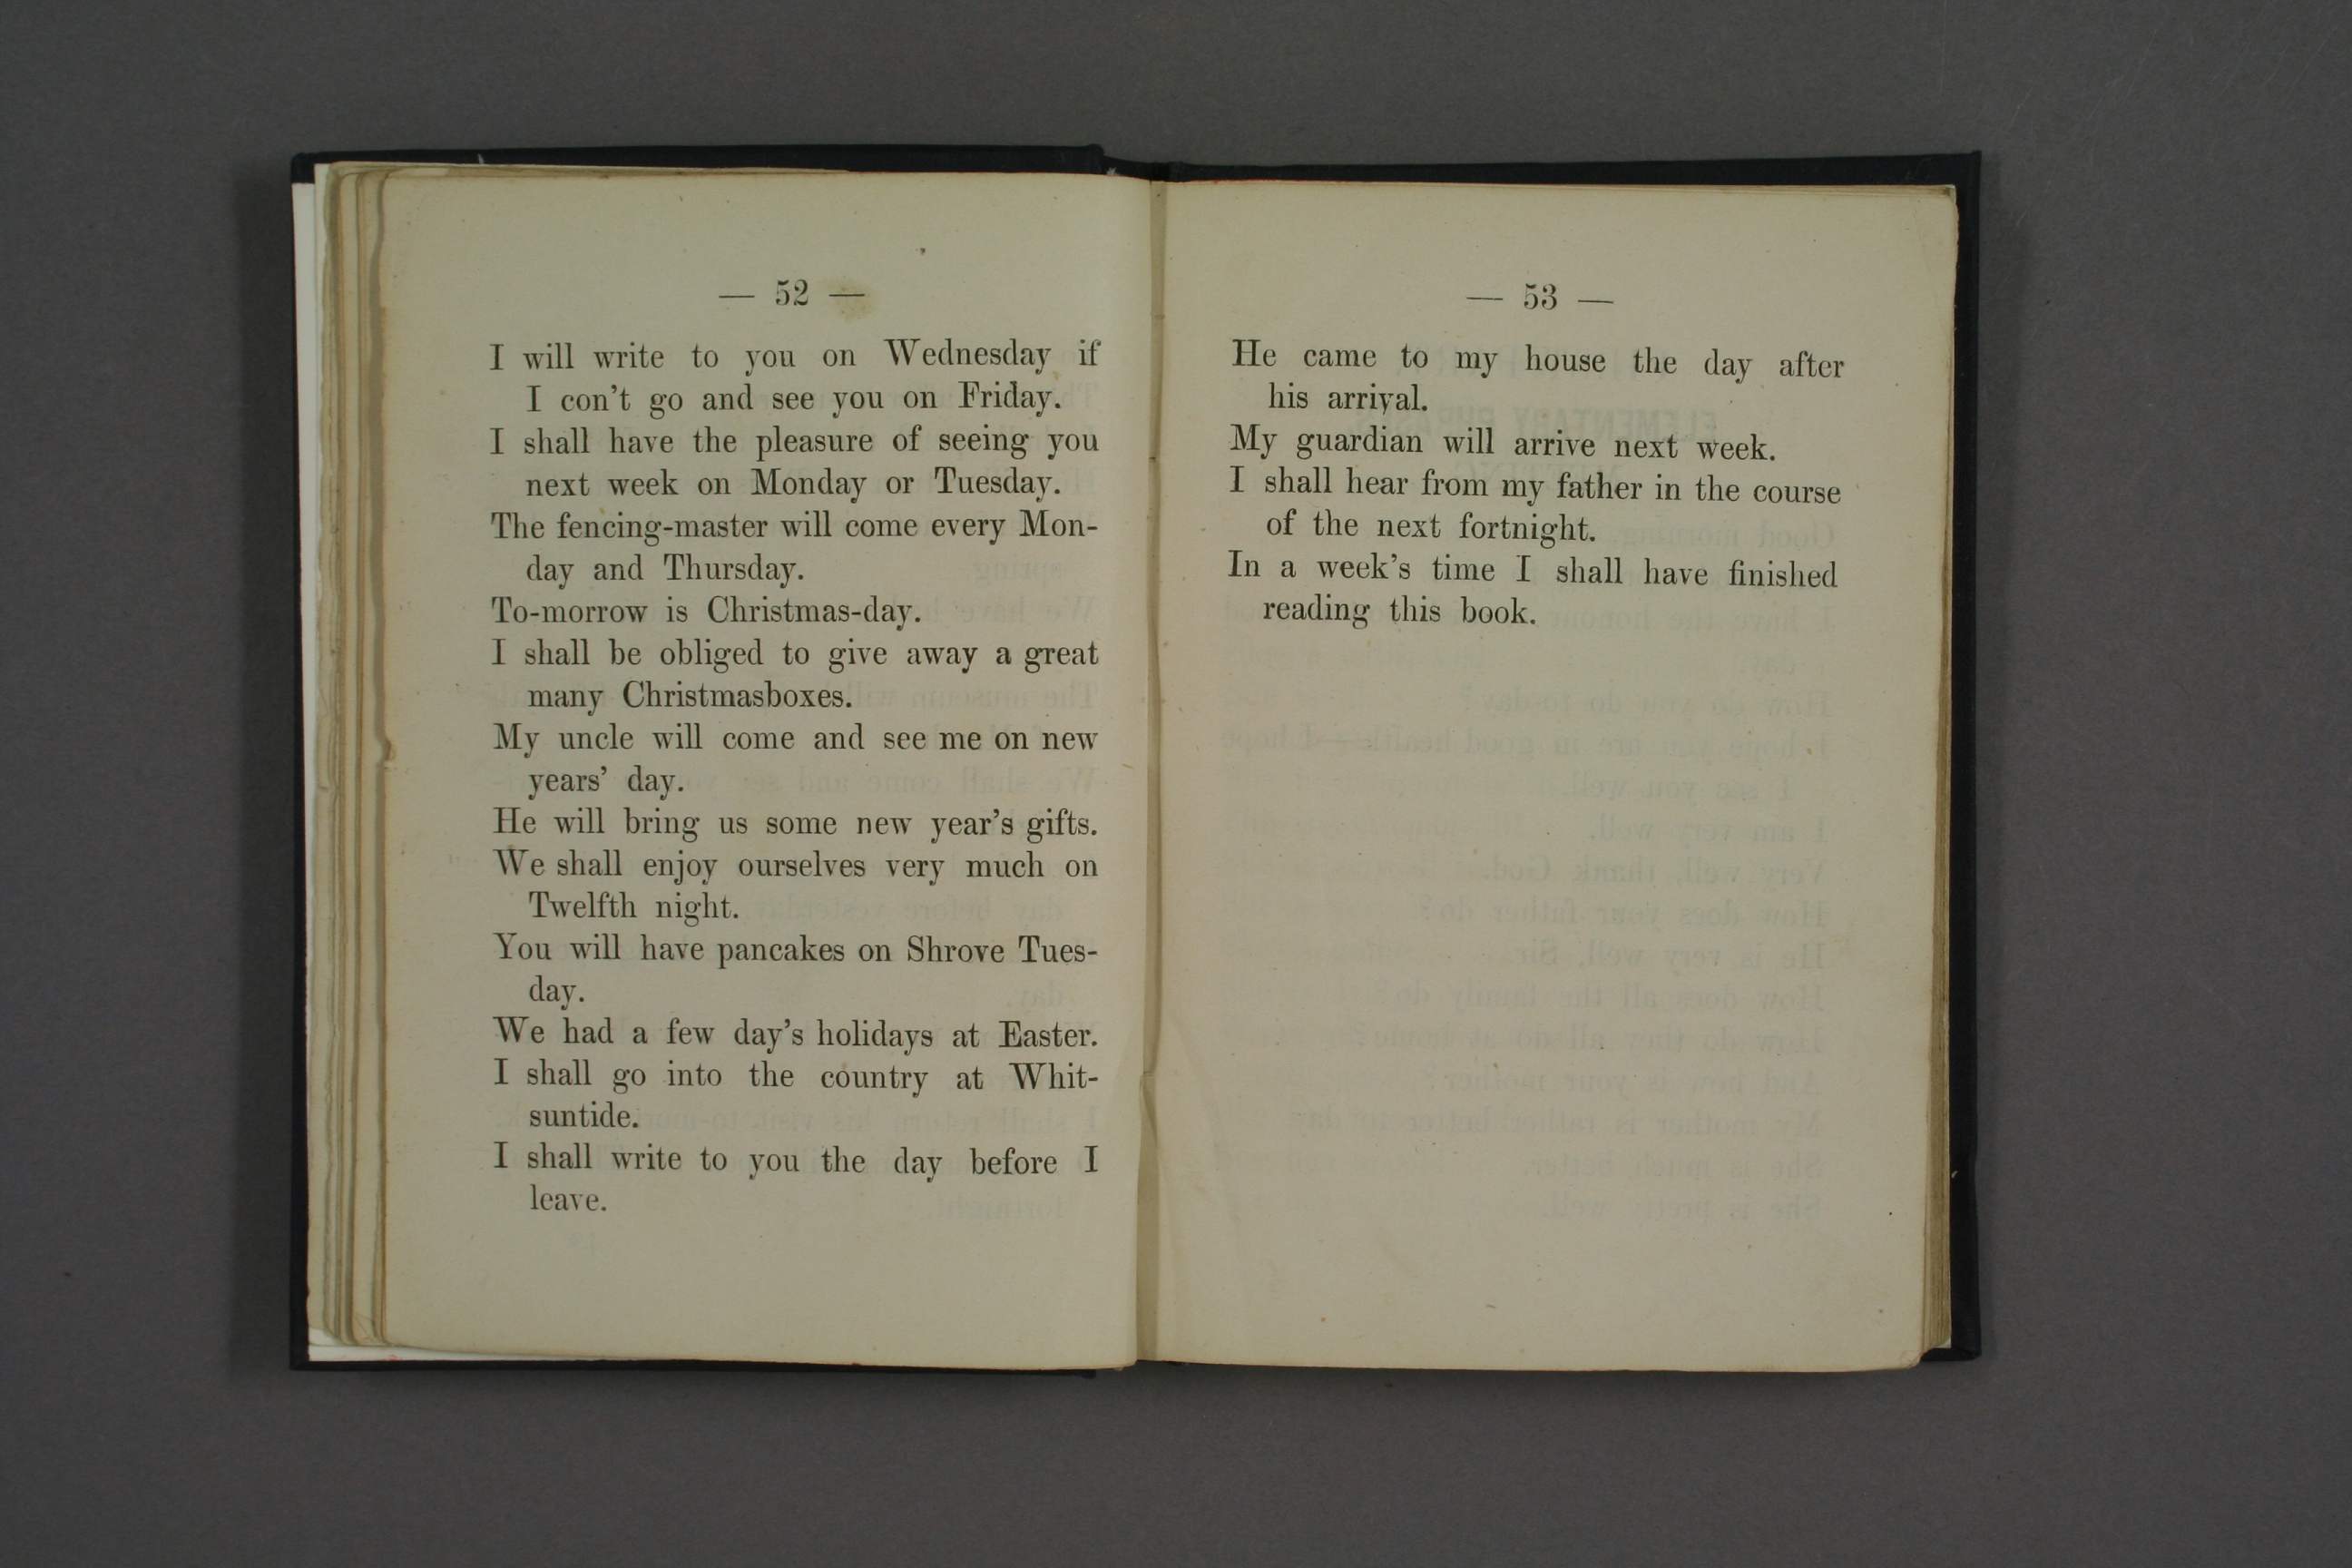 — 52 —
I will write to you on Wednesday if
I con't go and see you on Friday.
I shall have the pleasure of seeing you
next week on Monday or Tuesday.
The fencing-master will come every Mon-
day and Thursday.
To-morrow is Christmas-day.
I shall be obliged to give away a great
many Christmasboxes.
My uncle will come and see me on new
years' day.
He will bring us some new year's gifts.
We shall enjoy ourselves very much on
Twelfth night.
You will have pancakes on Shrove Tues-
day.
We had a few day's holidays at Easter.
I shall go into the country at Whit-
suntide.
I shall write to you the day before I
leave.
— 53 —
He came to my house the day after
his arrival.
My guardian will arrive next week.
I shall hear from my father in the course
of the next fortnight.
In a week's time I shall have finished
reading this book.